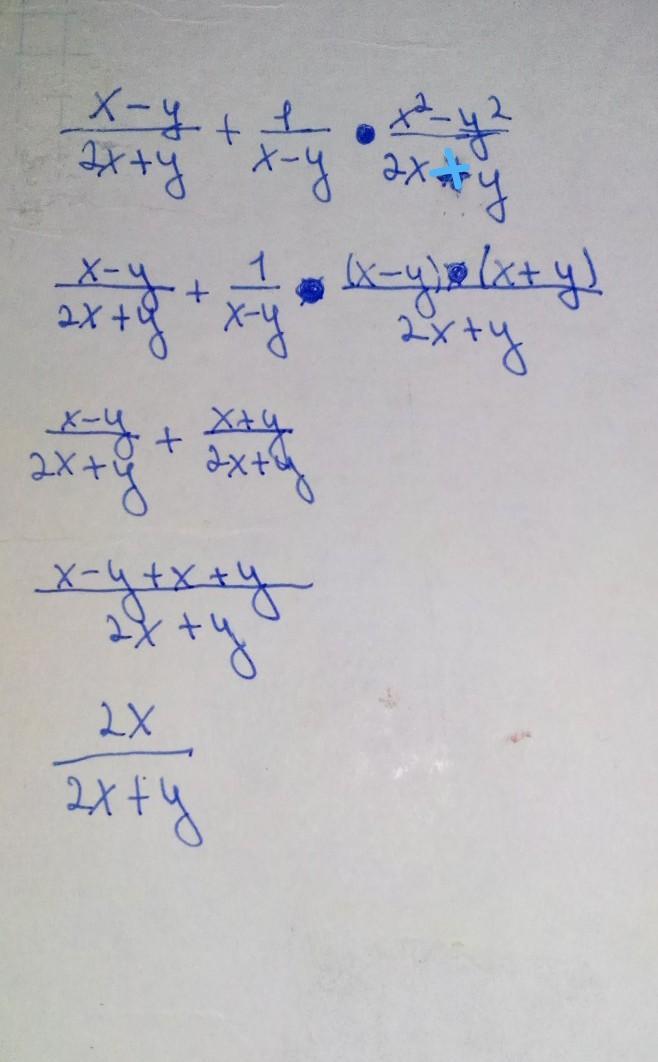 x-y/2x+y + 1/x-y • x²-y²/2x+y
x-y/2x+y + 1/x-y • (x-y)•(x+y)/2x+y
x-y/2x+y + x+y/2x+y
x-y+x+y/2x+y
2x/2x+y